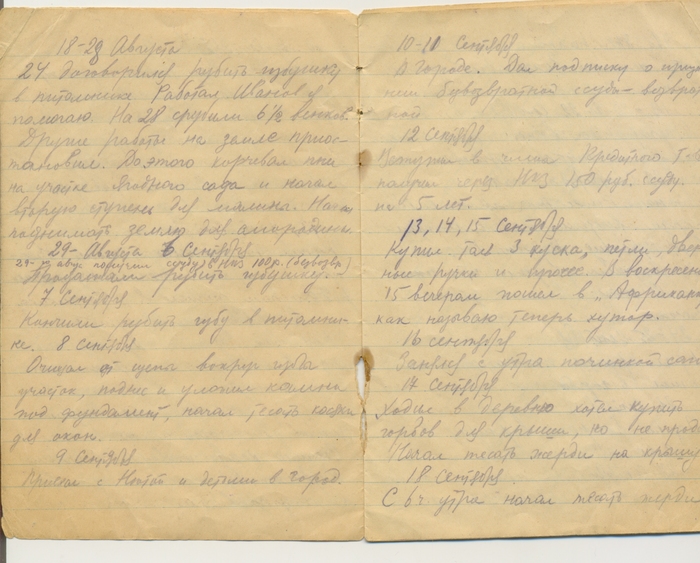 18-23 Августа
24 договорился рубить избушку
в питомнике Работал Иванов я
помогаю. На 28 срубили 6½ венков
Другие работы на земле приос-
тановил. До этого корчевал пни
на участке ягодного сада и начал
вторую ступень для малины. Начал
поднимать землю для смородины
29 - Августа 6 Сентября
получил ссуду 100р. (безвозвр.)
Продолжали рубить избушку. -
7 Сентября
Кончили рубить избу в питомни-
ке. 8 Сентября
Очищал от щепы вокруг изба
участок, поднес и уложил камни
под фундамент, начал тесать косяки
для окон.
9 Сентября
с Нютой и детьми в город.
10-11 Сентября
В городе. Дал подписку о
нии безвозвратной ссуды - возврат-
ной
12 Сентября
Вступил в члены Кредитного Т-ва
получил через 150 руб. ссуду.
на 5 лет.
13, 14, 15 Сентября
Купил 3 куска, петли,
ные ручки и прочее. В воскресенье
15 вечером пошел в „Африканду
как называю теперь хутор.
16 сентября
Занялся с утра починкой
17 Сентября
Ходил в деревню хотел купить
горбов для крыши, но не
Начал тесать жерди на крышу
18 Сентября.
С 6 ч. утра начал тесать жерди